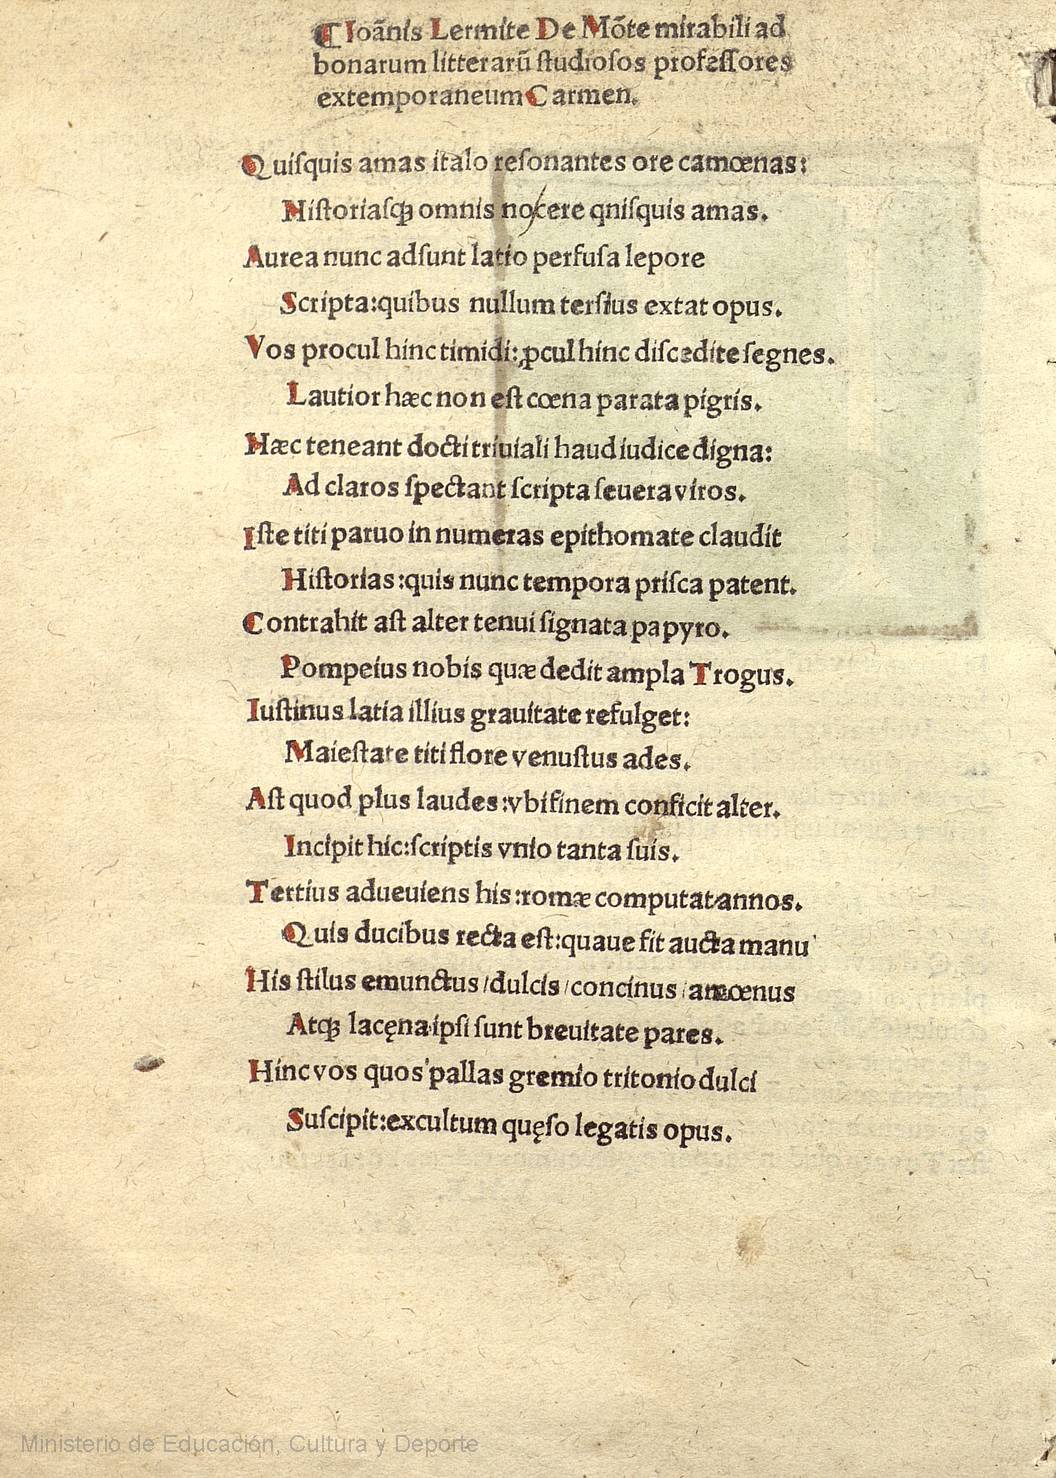 ¶ Ioãnis Lermite De Mõte mirabili ad
bonarum litterarũ ſtudioſos profeſſores
extemporaneum Carmen.
Quiſquis amas italo reſonantes ore camœnas:
Hiſtoriaſqꝫ omnis noſcere qniſquis amas.
Aurea nunc adſunt latio perfuſa lepore
Scripta: quibus nullum terſius extat opus.
Vos procul hinc timidi: ꝓcul hinc diſcedite ſegnes.
Lautior hæc non eſt cœna parata pigris.
Hæc teneant docti triuiali haud iudice digna:
Ad claros ſpectant ſcripta ſeuera viros.
Iſte titi paruo in numeras epithomate claudit
Hiſtorias: quis nunc tempora priſca patent.
Contrahit aſt alter tenui ſignata papyro.
Pompeius nobis quæ dedit ampla Trogus.
Iuſtinus latia illius grauitate refulget:
Maieſtate titi flore venuſtus ades.
Aſt quod plus laudes: vbi finem conficit alter.
Incipit hic: ſcriptis vnio tanta ſuis.
Tertius adueuiens his: romæ computat annos.
Quis ducibus recta eſt: quaue fit aucta manu
His ſtilus emunctus / dulcis / concinus / amœnus
Atqꝫ lacęna ipſi ſunt breuitate pares.
Hinc vos quos pallas gremio tritonio dulci
Suſcipit: excultum quęſo legatis opus.
Ministerio de Educación, Cultura y Deporte